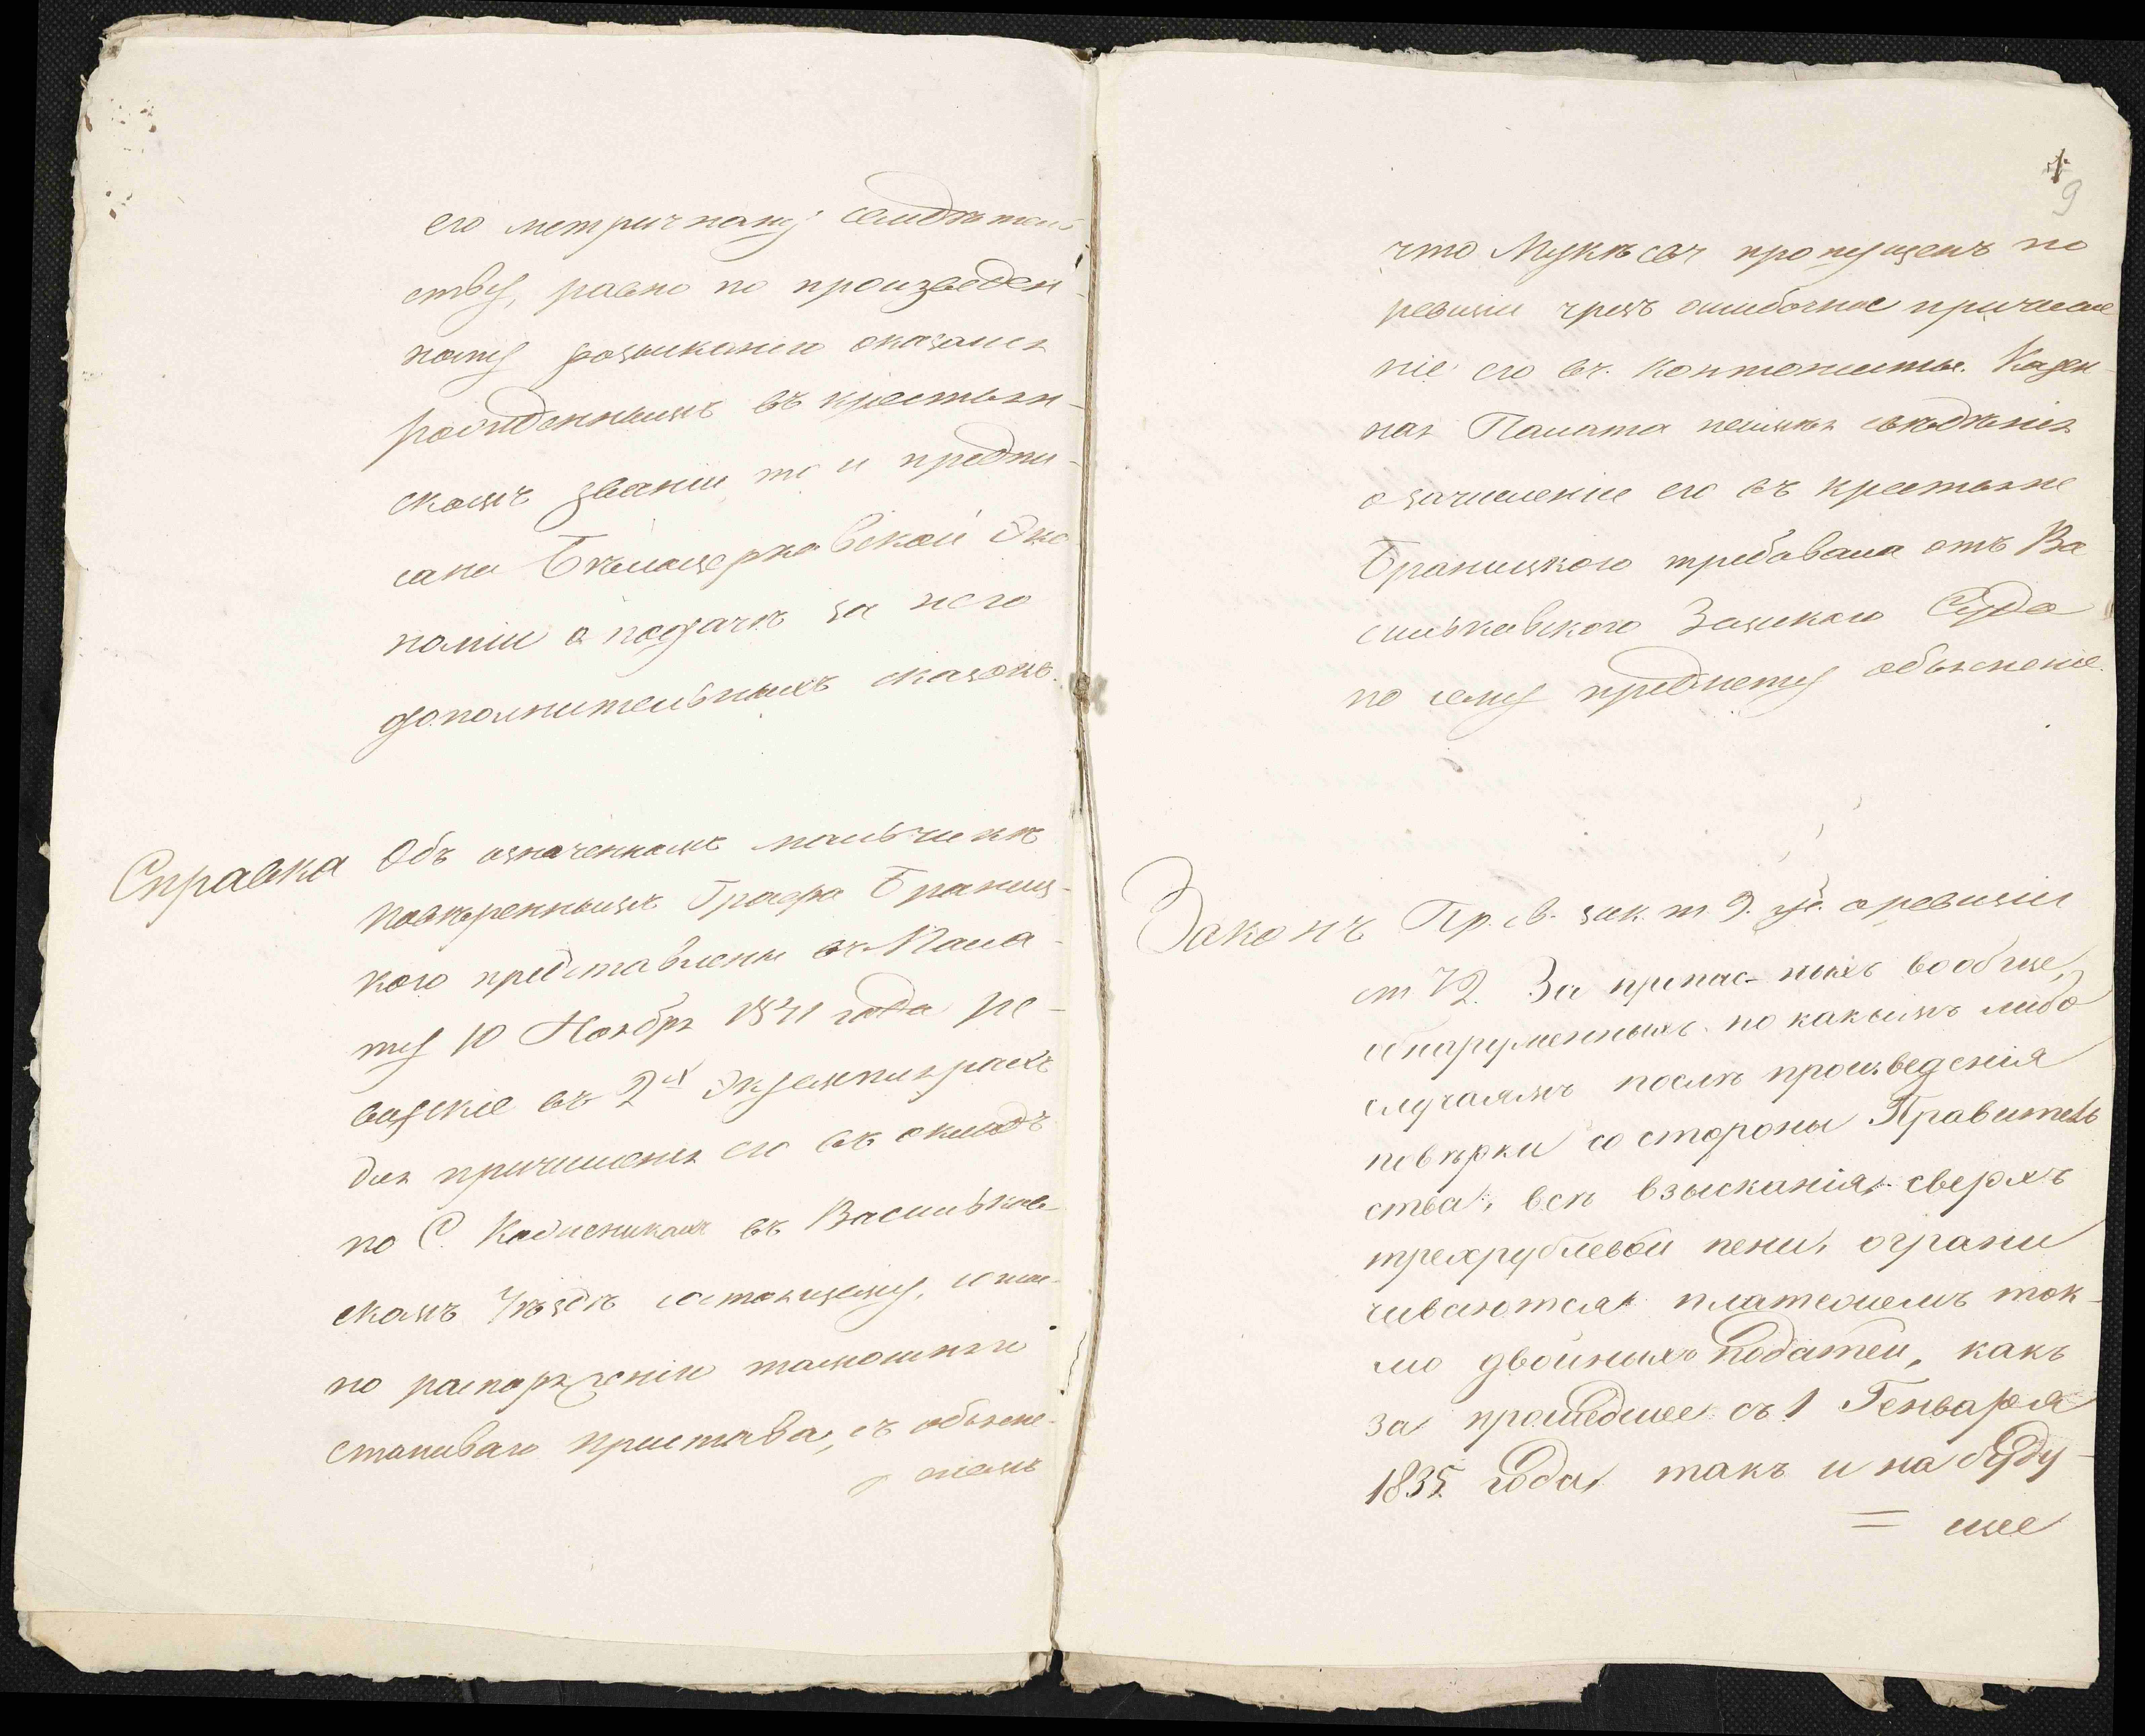 его метричному свидѣтель-
ству, равно по произведен-
ному розысканію оказался
рожденнымъ въ крестьян-
скомъ званіи то и предпи-
сано Бѣлоцерковской Эко-
номіи о подачѣ за него
дополнительныхъ сказокъ.
Справка Объ означенномъ мальчикѣ
повѣреннымъ Графа Браниц-
кого представлены въ Пала-
ту 10 Ноября 1841 года ре-
визскіе въ 2х Экземплярахъ
для причисленія его въ окладъ
по С. въ Васильков-
скомъ Уѣздѣ состоящему,
по распоряженію тамошняго
станового пристава, съ объясне-
ніемъ
9
что пропущенъ по
ревизіи чрезъ ошибочное причисле
ніе его въ кантонисты. Казен-
ная Палата неимѣя свѣдѣнія
о зачисленіе его въ крестьяне
Браницкого требовала отъ Ва
сильковского Земского Суда
по сему предмету объясненіе.
Законъ Пр. св. зак. т. 9. уст. о ревизіи
ст 72. За пропис-ныхъ вообще,
обнаруженныхъ по какимъ либо
случаямъ послѣ произведенія
повѣрки со стороны Правитель
ства, всѣ взысканія сверхъ
трехрублевой пени, ограни
чиваются платежемъ ток-
мо двойныхъ податей, какъ
за прошедшее съ 1 Генваря
1835 года, такъ и на буду-
= щее